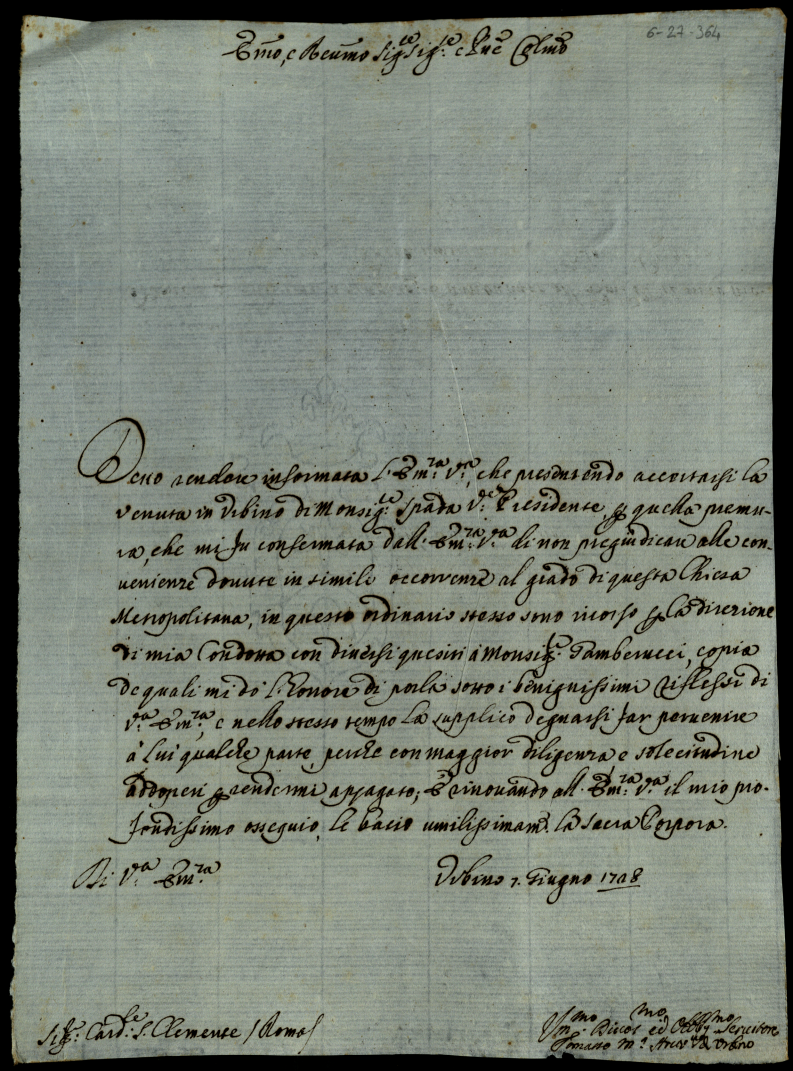 6-27-364
Emo, e Reumo Sig.re Sig.re e Pne Colmo
Devo rendere informata l'Em.za V.ra, che presentendo accostarsi la
venuta in Vrbino di Monsig.re Spada V.e Presidente, per quella premu-
ra, che mi fu confermata dall'Em.za V.ra di non pregiudicare alle con-
uenienze douute in simili occorrenze al grado di questa Chiesa
Metropolitana, in questo ordinario stesso sono ricorso per la direzione
di mia Condotta con diuersi quesiti à Monsig.re Gamberucci, copia
de quali mi dò l'Honore di porla sotto i benignissimi riflessi di
V.ra Em.za, e nello stesso tempo La supplico degnarsi far peruenire
à lui qualche parte, perche con maggior diligenza, e solecitudine
addoperi per rendermi appagato; E rinouando all'Em.za V.ra il mio pro-
fondissimo ossequio, le bacio umilissimam.e la Sacra Porpora.
Di V.ra Em.za
Vrbino 7. Giugno 1728
Sig.re Card.le S. Clemente /Roma/
Um.mo Diuot.mo ed Obbl.mo Seruitore
Tomaso M.a Arciv.o d'Vrbino